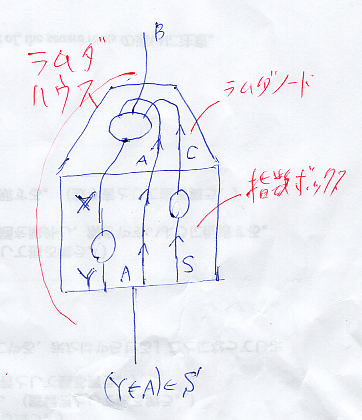 B
ラムダ
ハウス
ラムダノード
A C
指数ボックス
X
Y A S
(Y∈A)∈S